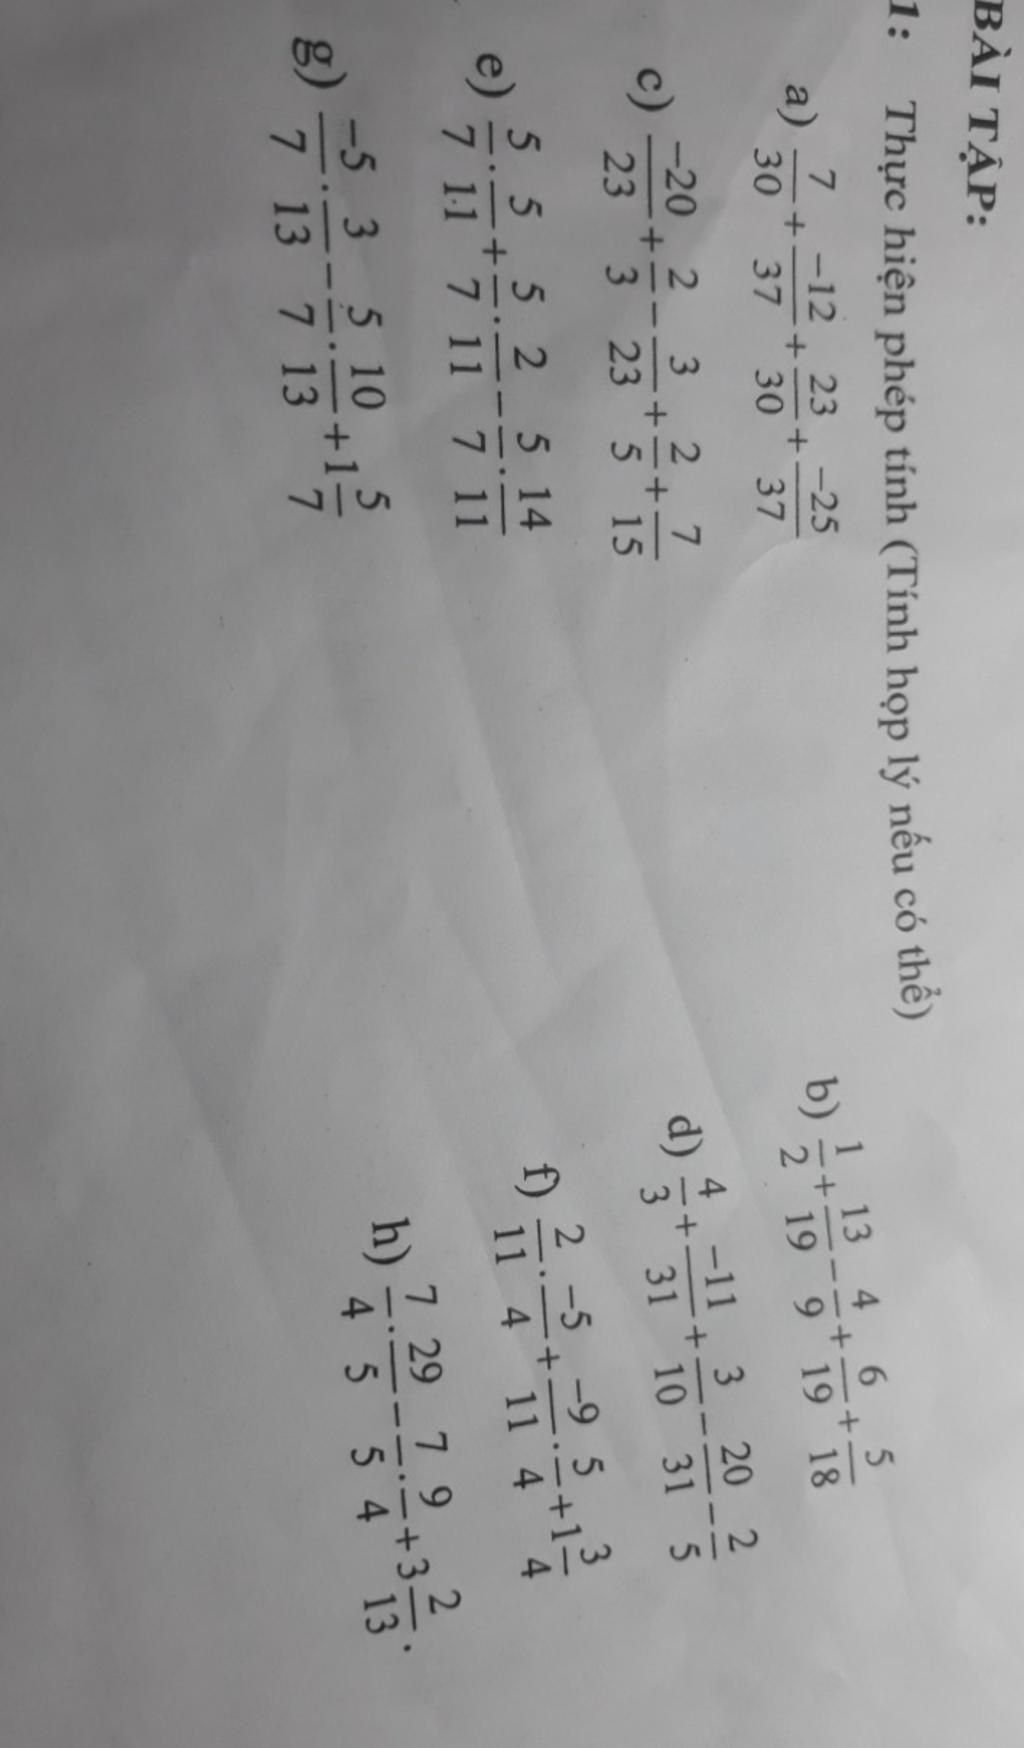 BÀI TẬP:
1: Thực hiện phép tính (Tính hợp lý nếu có thể)
a) 7/30 + -12/37 + 23/30 + -25/37
b) 1/2 + 13/19 - 4/9 + 6/19 + 5/18
c) -20/23 + 2/3 - 3/23 + 2/5 + 7/15
d) 4/3 + -11/31 + 3/10 - 20/31 - 2/5
e) 5/7 . 5/11 + 5/7 . 2/11 - 5/7 . 14/11
f) 2/11 . -5/4 + -9/11 . 5/4 + 1 3/4
g) -5/7 . 3/13 - 5/7 . 10/13 + 1 5/7
h) 7/4 . 29/5 - 7/5 . 9/4 + 3 2/13 .